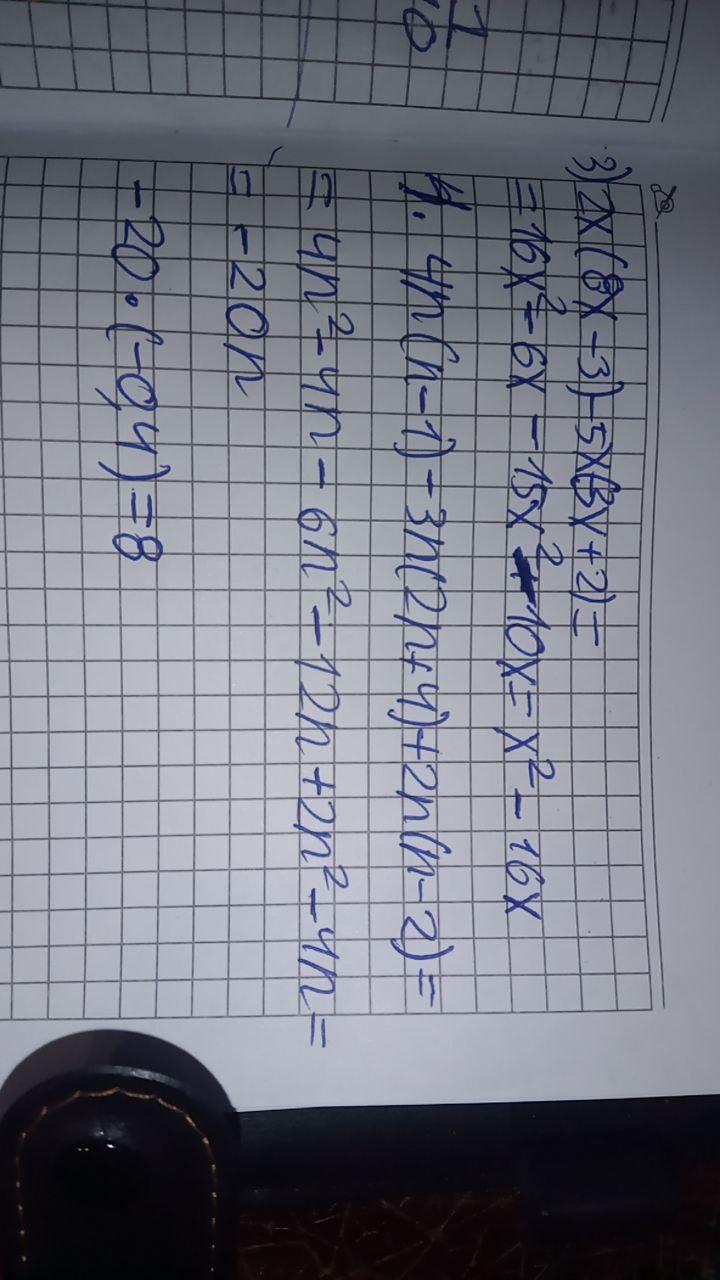 1
10
3) 2x(8x-3)-5x(3x+2)=
=16x²-6x-15x²-10x=x²-16x
4. 4n(n-1)-3n(2n+4)+2n(n-2)=
=4n²-4n-6n²-12n+2n²-4n=
=-20n
-20·(-0,4)=8